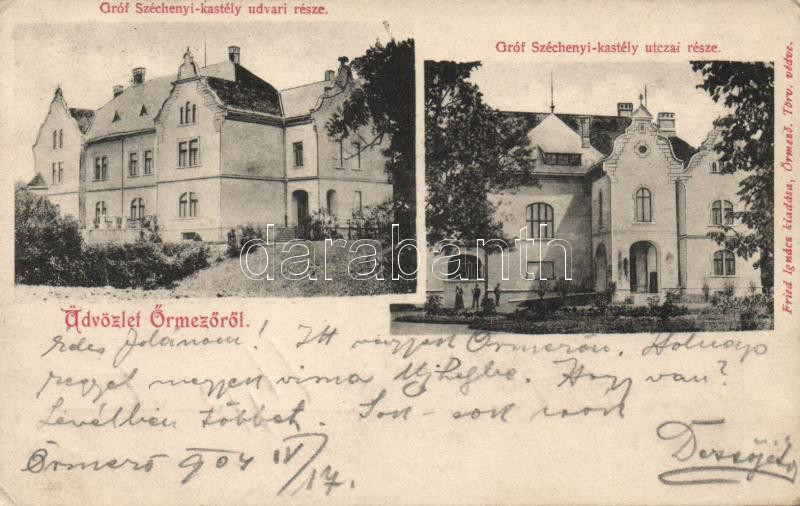 Gróf Széchenyi-kastély udvari része.
Gróf Széchenyi-kastély utczai része.
Fried Ignácz kiadása, Őrmező. Törv. védve.
darabanth
Üdvözlet Őrmezőről.
Édes Jolánom! Itt vagyok Őrmezőn. Holnap
reggel megyek vissza Ujhelybe. Hogy van?
Levélben többet. Sok - sok csók
Őrmező 904 IV/17.